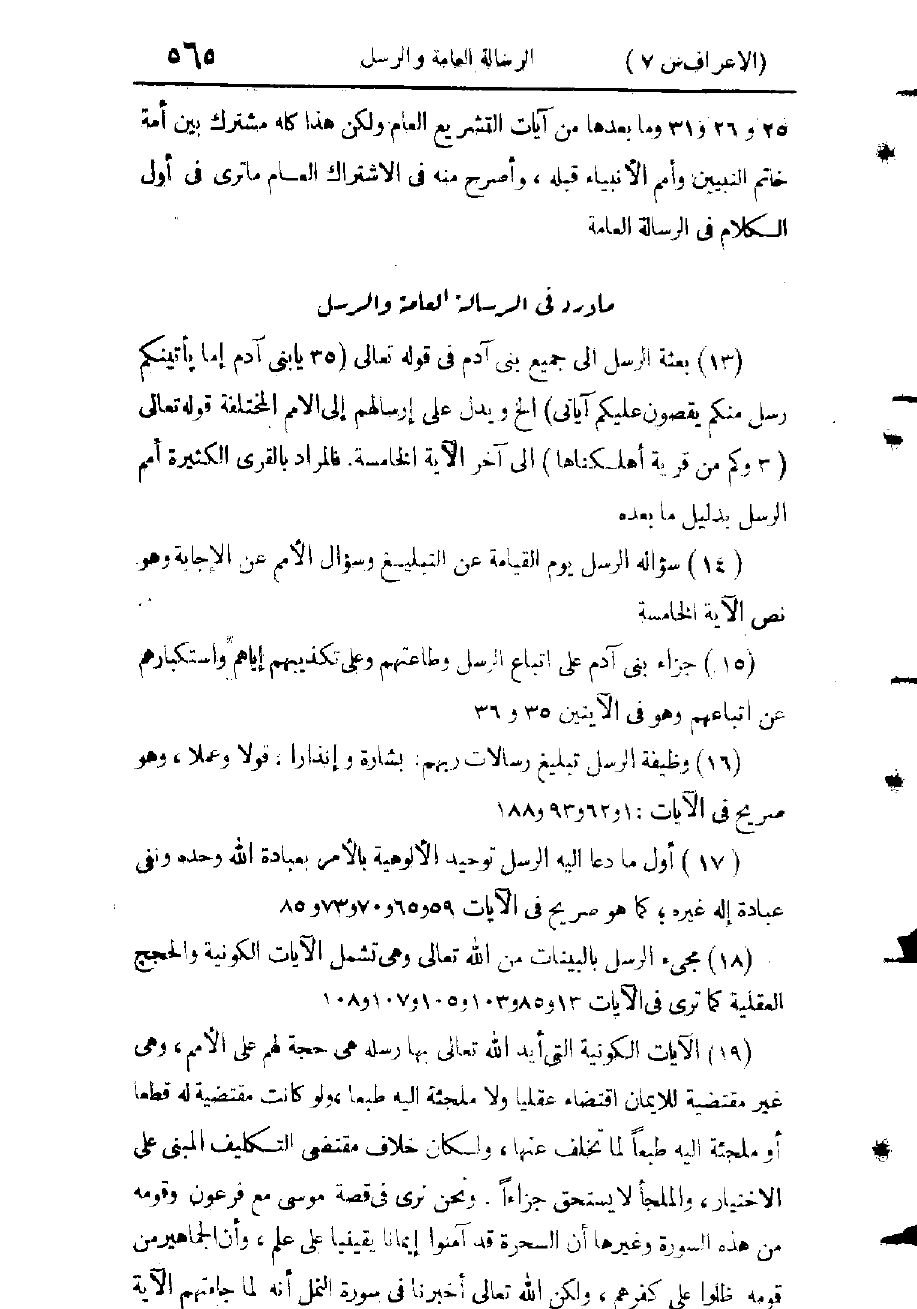 (الاعراف س ٧) الرسالة العامة والرسل ٥٦٥
٢٥ و ٢٦ و٣١ وما بعدها من آيات التشريع العام ولكن هذا كله مشترك بين أمة
خاتم النبيين وأمم الأنبياء قبله ، وأصرح منه فى الاشتراك العام ماترى فى أول
الكلام فى الرسالة العامة
ماورد فى الرسالة العامة والرسل
(١٣) بعثة الرسل الى جميع بنى آدم فى قوله تعالى (٣٥ يابنى آدم إما يأتينكم
رسل منكم يقصون عليكم آياتى) الخ ويدل على إرسالهم إلى الامم المختلفة قوله تعالى
( ٣ وكم من قرية أهلكناها ) الى آخر الآية الخامسة. فالمراد بالقرى الكثيرة أمم
الرسل بدليل ما بعده
( ١٤ ) سؤاله الرسل يوم القيامة عن التبليغ وسؤال الأمم عن الإجابة وهو
نص الآية الخامسة
(١٥ ) جزاء بنى آدم على اتباع الرسل وطاعتهم وعلى تكذيبهم إياهم واستكبارهم
عن اتباعهم وهو فى الآيتين ٣٥ و ٣٦
(١٦) وظيفة الرسل تبليغ رسالات ربهم: بشارة وإنذارا ، قولا وعملا ، وهو
صريح فى الآيات : ١و٦٢و٩٣ و١٨٨
( ١٧ ) أول ما دعا اليه الرسل توحيد الألوهية بالأمر بعبادة الله وحده ونفى
عبادة إله غيره ، كما هو صريح فى الآيات ٥٩و٦٥و٧٠و٧٣و ٨٥
(١٨) مجىء الرسل بالبينات من الله تعالى وهى تشمل الآيات الكونية والحجج
العقلية كما ترى فى الآيات ١٣و٨٥و١٠٣و١٠٥و١٠٧و١٠٨
(١٩) الآيات الكونية التى أيد الله تعالى بها رسله هى حجة لهم على الأمم ، وهى
غير مقتضية للايمان اقتضاء عقليا ولا ملجئة اليه طبعا ،ولو كانت مقتضية له قطعا
أو ملجئة اليه طبعاً لما تخلف عنها ، ولكان خلاف مقتضى التكليف المبنى على
الاختيار ، والملجأ لا يستحق جزاءاً . ونحن نرى فى قصة موسى مع فرعون وقومه
من هذه السورة وغيرها أن السحرة قد آمنوا إيمانا يقينيا على علم ، وأن الجماهير من
قومه ظلوا على كفرهم ، ولكن الله تعالى أخبرنا فى سورة النمل أنه لما جاءتهم الآية